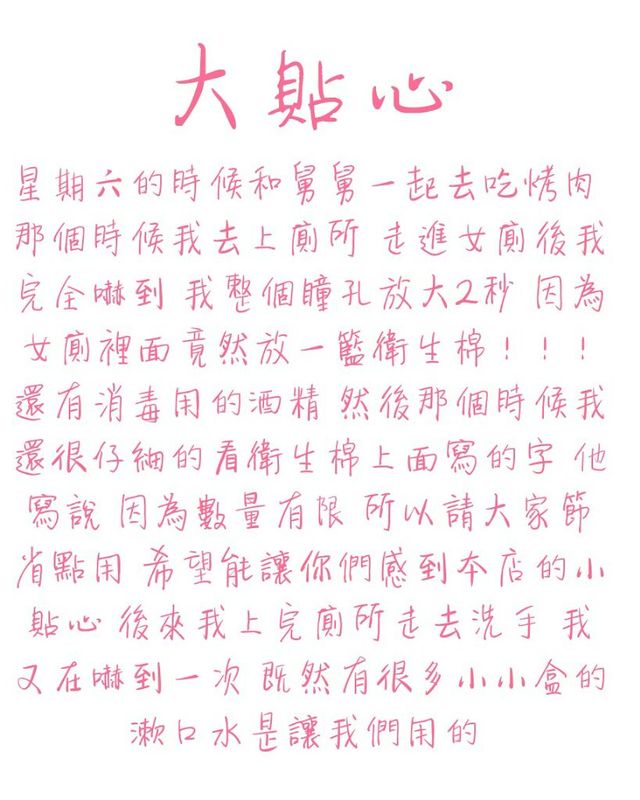 大貼心
星期六的時候和舅舅一起去吃烤肉
那個時候我去上廁所 走進女廁後我
完全嚇到 我整個瞳孔放大2秒 因為
女廁裡面竟然放一籃衛生棉！！！
還有消毒用的酒精 然後那個時候我
還很仔細的看衛生棉上面寫的字 他
寫說 因為數量有限 所以請大家節
省點用 希望能讓你們感到本店的小
貼心 後來我上完廁所走去洗手 我
又在嚇到一次 既然有很多小小盒的
漱口水是讓我們用的